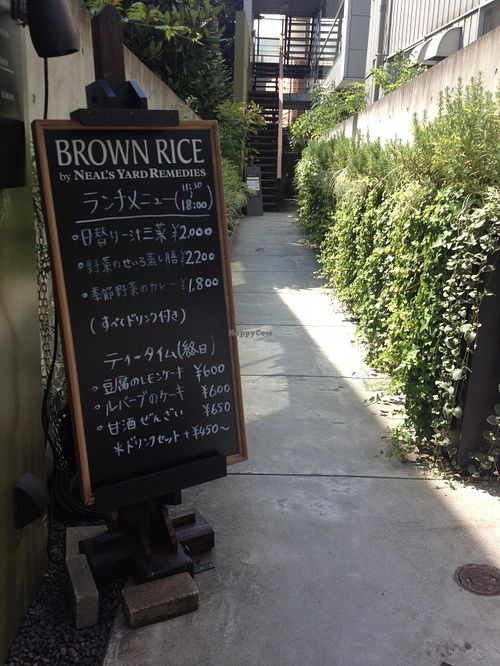 BROWN RICE
by NEAL'S YARD REMEDIES
ランチメニュー(11:30〜18:00)
• 日替り一汁三菜 ¥2.000
• 野菜のせいろ蒸し膳 ¥2200
• 季節野菜のカレー ¥1.800
(すべてドリンク付き)
ティータイム(終日)
• 豆腐のレモンケーキ ¥600
• ルバーブのケーキ ¥600
• 甘酒ぜんざい ¥650
*ドリンクセット +¥450〜
HappyCow